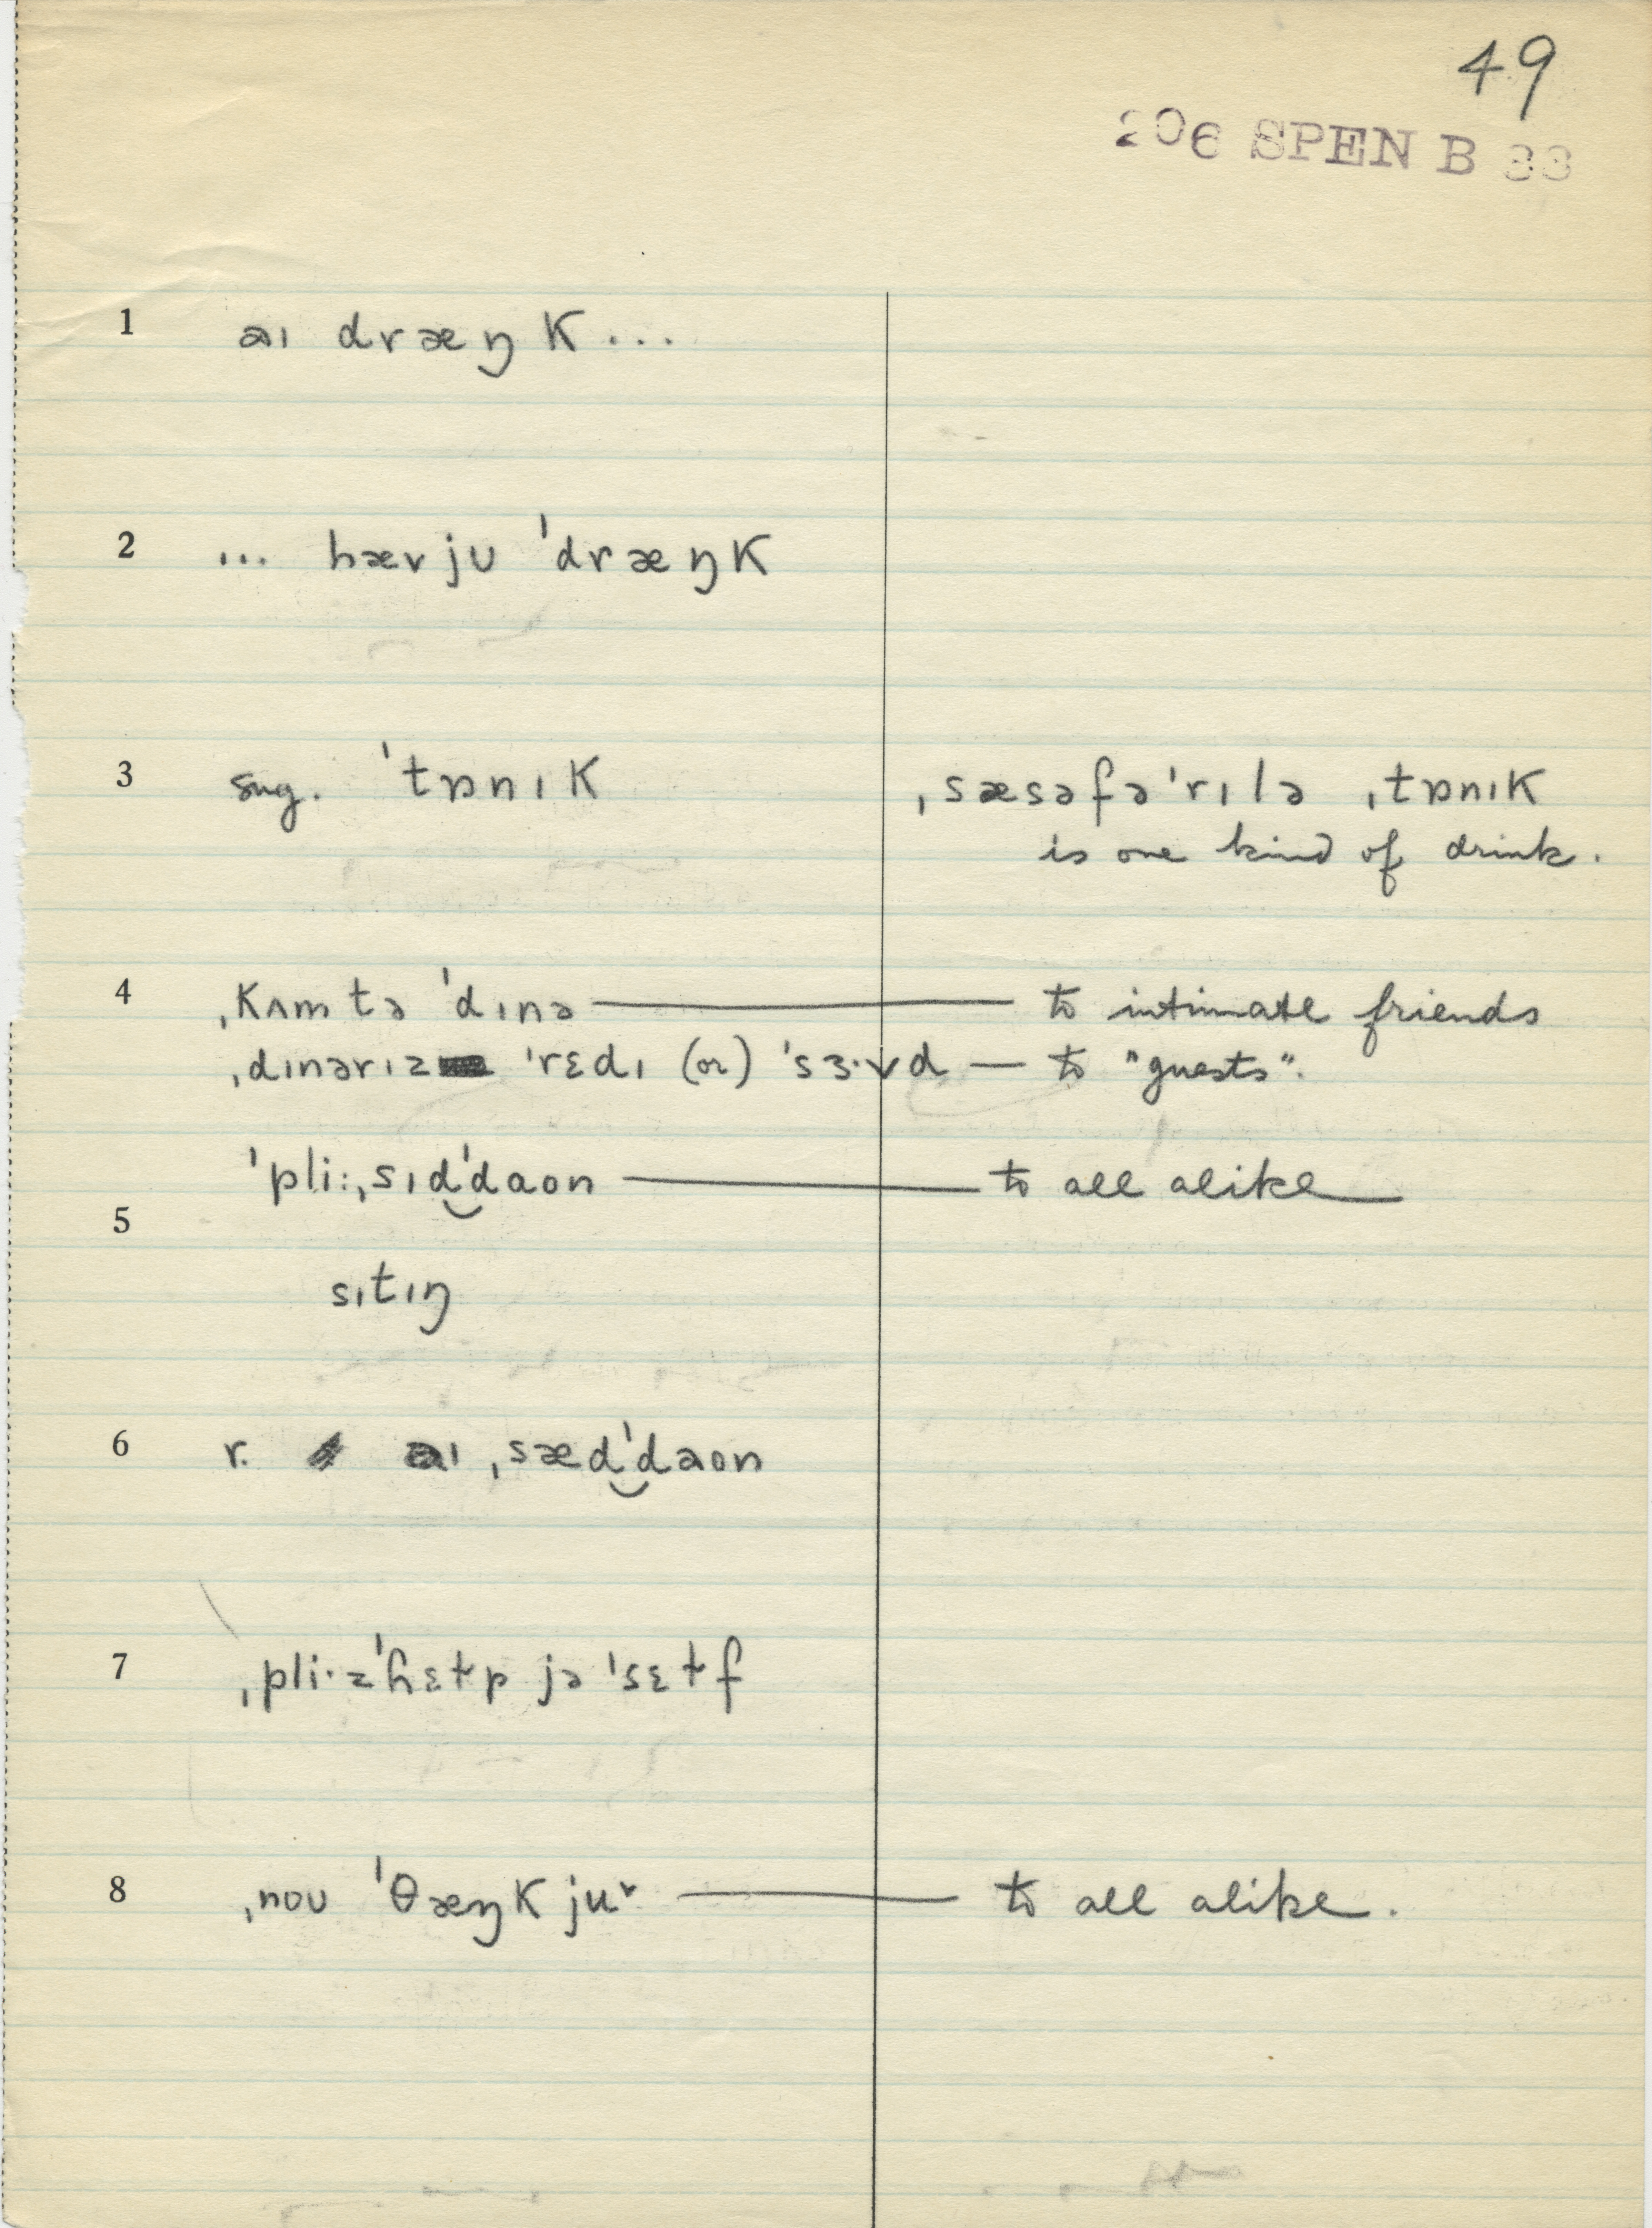 49
206 SPEN B 33
1 aı dræŋk...
2 ... hævjʊ ˈdræŋk
3 sug. ˈtɒnık ˌsæsəfəˈrılə ˌtɒnık
is one kind of drink.
4 ˌkʌmtə ˈdınə — to intimate friends
ˌdınərız ˈrɛdı (or) ˈsɜ·vd — to "guests".
ˈpli:ˌsıd‿ˈdaʊn — to all alike
5
sıtıŋ
6 r. aı ˌsæd‿ˈdaʊn
7 ˌpli·zˈhɛɫp jə ˈsɛɫf
8 ˌnoʊ ˈθæŋkju˅ — to all alike.